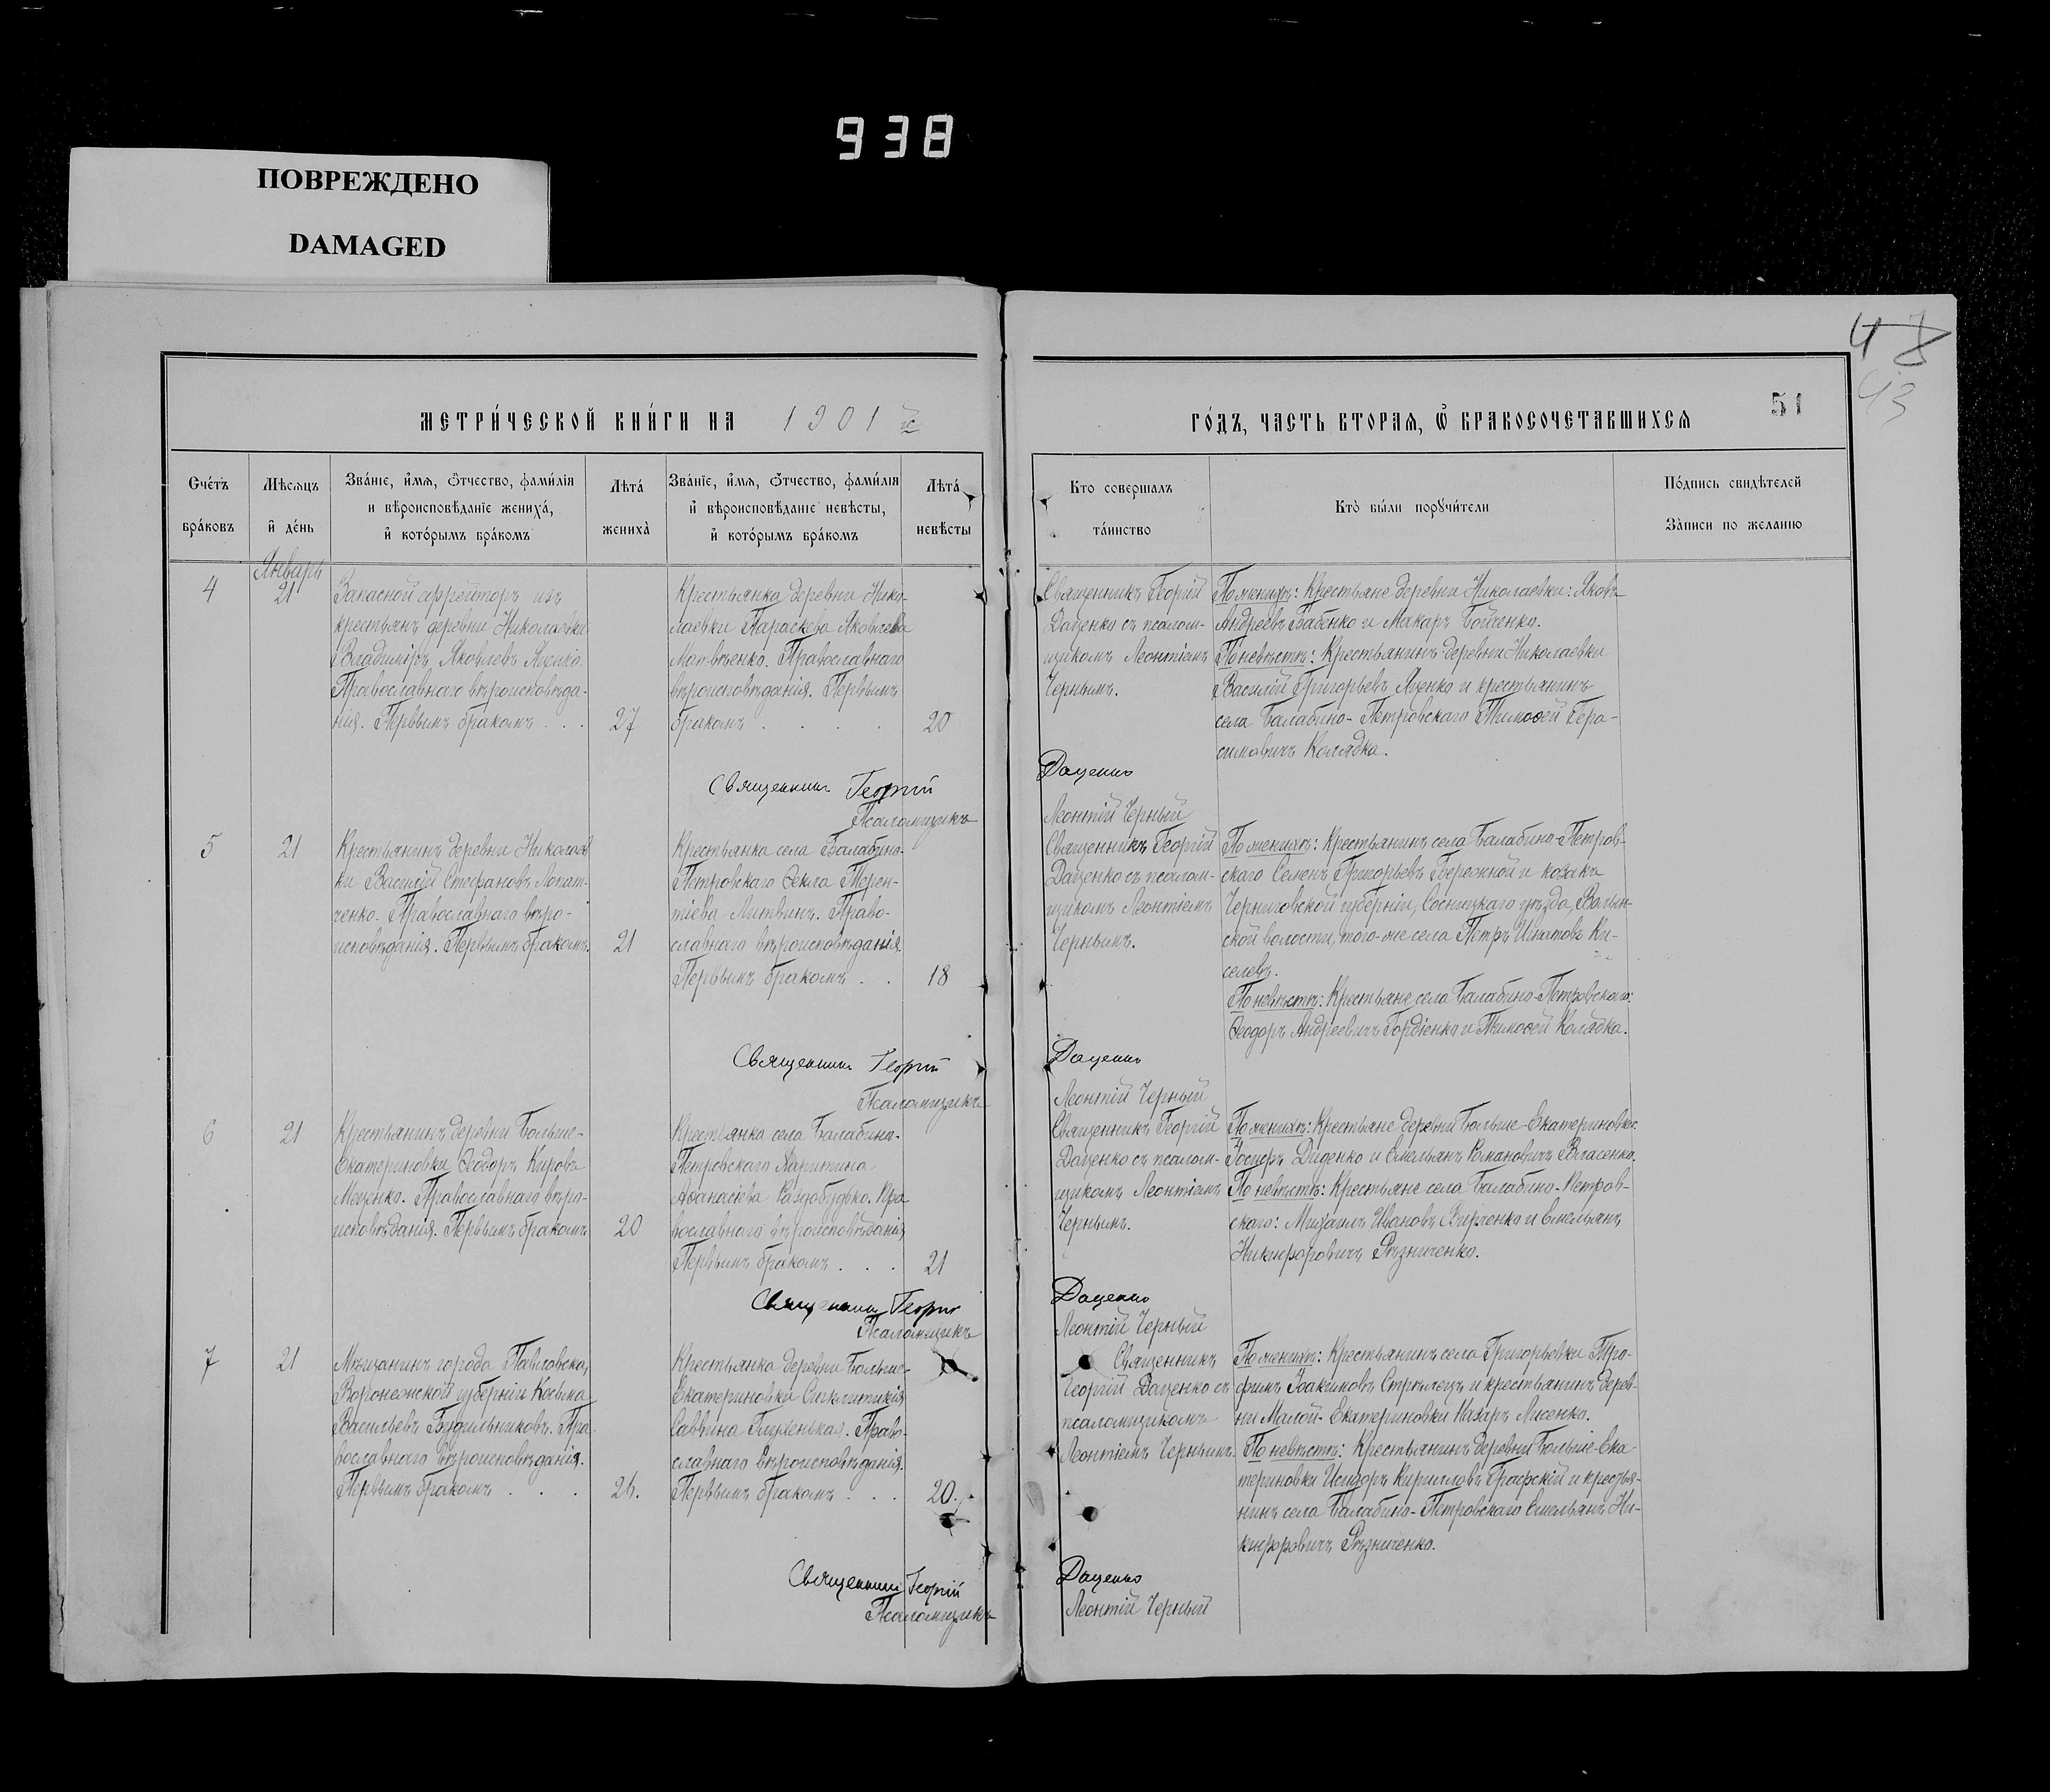 938
ПОВРЕЖДЕНО
DAMAGED
48
43
51
МЕТРИ́ЧЕСКОЙ КНИ́ГИ НА 1901 й
ГО́ДЪ, ЧАСТЬ ВТОРАѦ, Ѡ БРАКОСОЧЕТАВШИХСѦ
Сче́тъ
бра́ковъ
Мѣсѧцъ
и де́нь
Зва́нїе, и́мѧ, ѻ́тчество, фами́лїя
и вѣроисповѣданїе жениха̀,
и кото́рымъ бра́комъ
Лѣта̀
жениха̀
Зва́нїе, и́мѧ, ѻ́тчество, фами́лїя
и вѣроисповѣданїе невѣсты,
и кото́рымъ бра́комъ
Лѣта̀
невѣсты
Кто совершалъ
та́инство
Кто̀ бы́ли порꙋчи́тели
По́дпись свидѣтелей
За́писи по желанію
Январь
4
21
Запасной ефрейторъ изъ
крестьянъ деревни Николаевки
Владиміръ Яковлевъ Яценко.
Православнаго вѣроисповѣда-
нія. Первымъ бракомъ . . .
27
Крестьянка деревни Нико-
лаевки Параскева Яковлева
Матвѣенко. Православнаго
вѣроисповѣданія. Первымъ
бракомъ . . . .
20
Священникъ Георгій
Даценко съ псалом-
щикомъ Леонтіемъ
Чернымъ.
По женихѣ: Крестьяне деревни Николаевки: Яковъ
Андреевъ Бабенко и Макаръ Бойченко.
По невѣстѣ: Крестьянинъ деревни Николаевки
Василій Григорьевъ Яценко и крестьянинъ
села Балабино-Петровскаго Тимоѳей Гера-
симовичъ Колядка.
Священникъ Георгій Даценко
Псаломщикъ Леонтій Черный
5
21
Крестьянинъ деревни Николаев
ки Василій Стефановъ Лопат-
ченко. Православнаго вѣро-
исповѣданія. Первымъ бракомъ.
21
Крестьянка села Балабино-
Петровскаго Ѳекла Терен-
тіева Литвинъ. Право-
славнаго вѣроисповѣданія.
Первымъ бракомъ . .
18
Священникъ Георгій
Даценко съ псалом-
щикомъ Леонтіемъ
Чернымъ.
По женихѣ: Крестьянинъ села Балабино-Петров-
скаго Семенъ Григорьевъ Бережной и козакъ
Черниговской губерніи, Сосницкаго уѣзда, Волын-
ской волости, того-же села Петръ Игнатовъ Ки-
селевъ.
По невѣстѣ: Крестьяне села Балабино-Петровскаго:
Ѳеодоръ Андреевичъ Гордіенко и Тимоѳей Колядка.
Священникъ Георгій Даценко
Псаломщикъ Леонтій Черный
6
21
Крестьянинъ деревни Больше-
Екатериновки Ѳеодоръ Кировъ
Маценко. Православнаго вѣро-
исповѣданія. Первымъ бракомъ
20
Крестьянка села Балабино-
Петровскаго Харитина
Аѳанасіева Раздобудько. Пра
вославнаго вѣроисповѣданія
Первымъ бракомъ . . .
21
Священникъ Георгій
Даценко съ псалом-
щикомъ Леонтіемъ
Чернымъ.
По женихѣ: Крестьяне деревни Больше-Екатериновки:
Іосифъ Диденко и Емельянъ Романовичъ Власенко.
По невѣстѣ: Крестьяне села Балабино-Петров-
скаго: Михаилъ Ивановъ Кирченко и Емельянъ
Никифоровичъ Рѣзниченко.
Священникъ Георгій Даценко
Псаломщикъ Леонтій Черный
7
21
Мѣщанинъ города Павловска,
Воронежской губерніи Косьма
Васильевъ Будильниковъ. Пра
вославнаго вѣроисповѣданія.
Первымъ бракомъ . . .
26.
Крестьянка деревни Больше-
Екатериновки Синклитикія
Саввина Гиженькая. Право-
славнаго вѣроисповѣданія.
Первымъ бракомъ . . .
20.
Священникъ
Георгій Даценко съ
псаломщикомъ
Леонтіемъ Чернымъ.
По женихѣ: Крестьянинъ села Григорьевки Тро-
фимъ Іоакимовъ Стрѣлецъ и крестьянинъ дерев-
ни Малой-Екатериновки Назаръ Лисенко.
По невѣстѣ: Крестьянинъ деревни Больше-Ека
териновки Исидоръ Кирилловъ Графскій и крестья-
нинъ села Балабино-Петровскаго Емельянъ Ни-
кифоровичъ Рѣзниченко.
Священникъ Георгій Даценко
Псаломщикъ Леонтій Черный